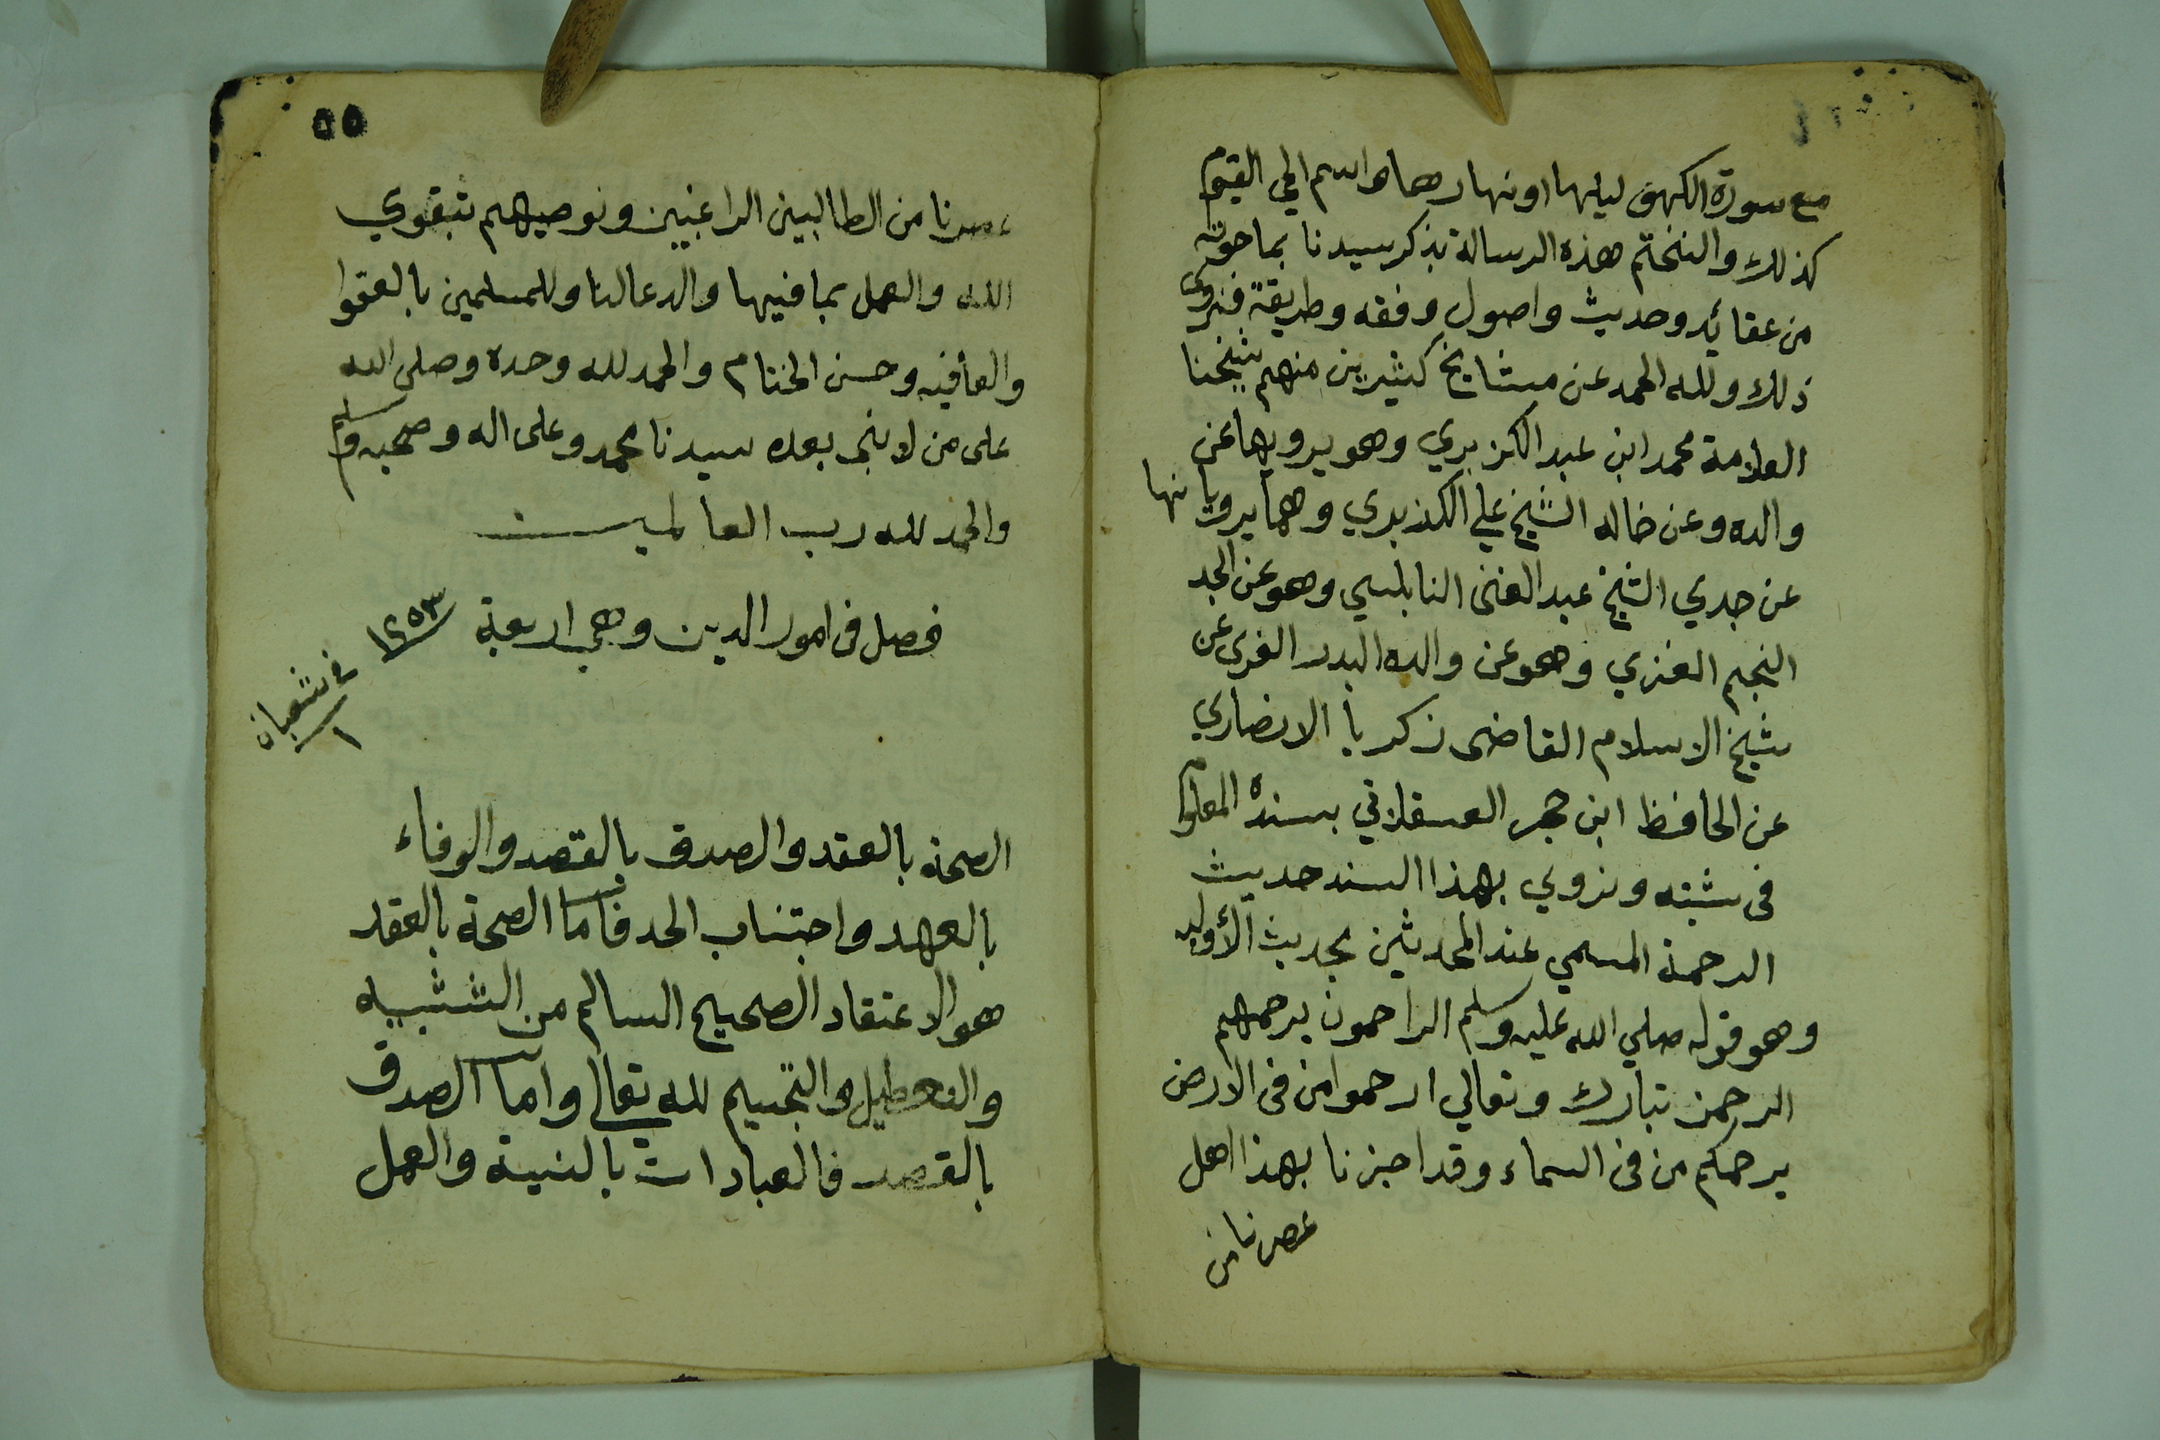 مع سورة الكهف ليلها او نهارها والله اسم الحي القيوم
كذلك والنختم هذه الرسالة بذكر سيدنا بما حوته
من عقائد وحديث واصول وفقه وطريقة فنروي
ذلك ولله الحمد عن مشايخ كثيرين منهم شيخنا
العلامة محمد ابن عبد الكزبري وهو يرويها عن
والده وعن خاله الشيخ علي الكذبري وهما يرويانها
عن جدي الشيخ عبد الغنى النابلسي وهو عن الجد
النجم الغزي وهو عن والده البدر الغزى عن
شيخ الاسلام القاضى زكريا الانصاري
عن الحافظ ابن حجر العسقلاني بسنده المعلوم
فى ثبته ونروي بهذا السند حديث
الرحمة المسمي عند المحدثين بحديث الأوليه
وهو قوله صلي الله عليه وسلم الراحمون يرحمهم
الرحمن تبارك وتعالي ارحموا من فى الارض
يرحمكم من فى السماء وقد اجزنا بهذا اهل
عصرنا من
٥٥
عصرنا من الطالبين الراغبين ونوصيهم بتقوي
الله والعمل بما فيها والدعا لنا وللمسلمين بالعقوا
والعافيه وحسن الختام والحمد لله وحده وصلى الله
على من لا نبى بعده سيدنا محمد وعلى اله وصحبه وسلم
والحمد لله رب العالمين
فصل فى امور الدين وهي اربعة
١٢٥٣
في شعبان
١
الصحة بالعقد والصدق بالقصد والوفاء
بالعهد واجتناب الحد فاما الصحة بالعقد
هو الاعتقاد الصحيح السالم من التشبيه
والتعطيل والتجسيم لله تعالى وأما الصدق
بالقصد فالعبادات بالنية والعمل